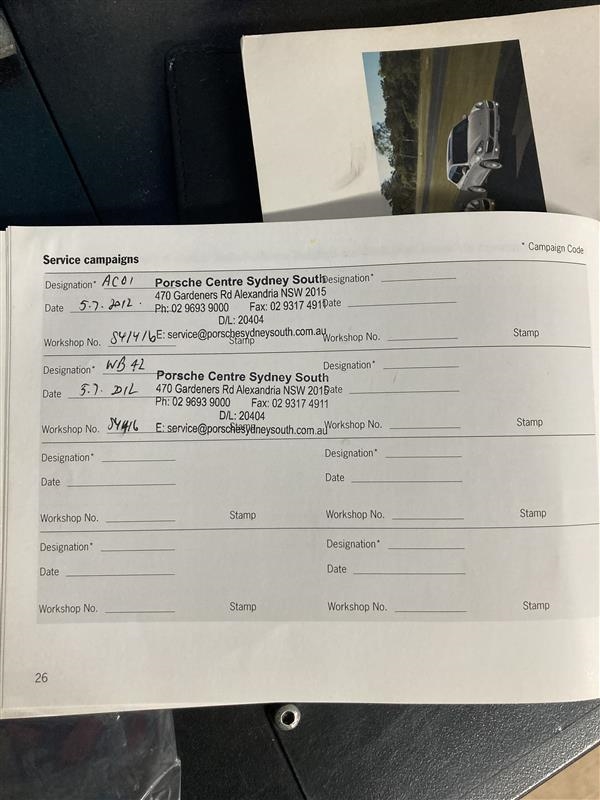 * Campaign Code
Service campaigns
Designation* AC01
Porsche Centre Sydney South
Designation*
470 Gardeners Rd Alexandria NSW 2015
Date 5.7.2012.
Ph: 02 9693 9000 Fax: 02 9317 4911
Date
D/L: 20404
Workshop No.
E: service@porschesydneysouth.com.au
Stamp
Workshop No.
Stamp
Designation* WB42
Porsche Centre Sydney South
Designation*
470 Gardeners Rd Alexandria NSW 2015
Date 5.7.
Ph: 02 9693 9000 Fax: 02 9317 4911
Date
D/L: 20404
Workshop No.
E: service@porschesydneysouth.com.au
Stamp
Workshop No.
Stamp
Designation*
Designation*
Date
Date
Workshop No.
Stamp
Workshop No.
Stamp
Designation*
Designation*
Date
Date
Workshop No.
Stamp
Workshop No.
Stamp
26